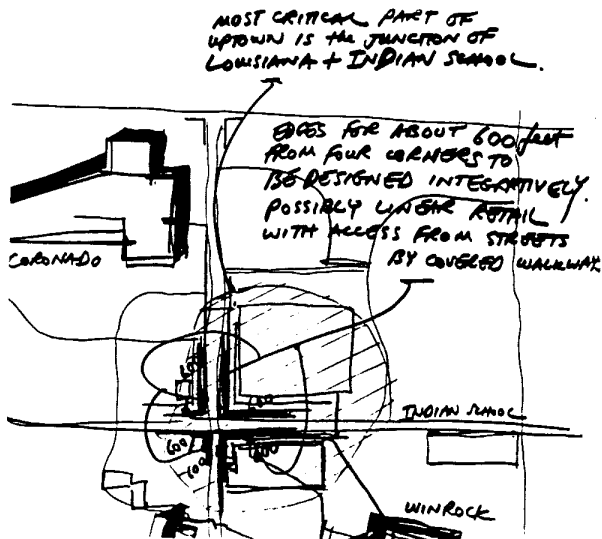 MOST CRITICAL PART OF
UPTOWN IS the JUNCTION OF
LOUISIANA + INDIAN SCHOOL.
EDGES FOR ABOUT 600 feet
FROM FOUR CORNERS TO
BE DESIGNED INTEGRATIVELY.
POSSIBLY LINEAR RETAIL
WITH ACCESS FROM STREETS
BY COVERED WALKWAY
CORONADO
600
600
INDIAN SCHOOL
600
600
600
WINROCK